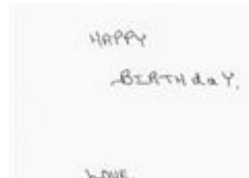 HAPPY
BIRTHdaY,
LOVE,